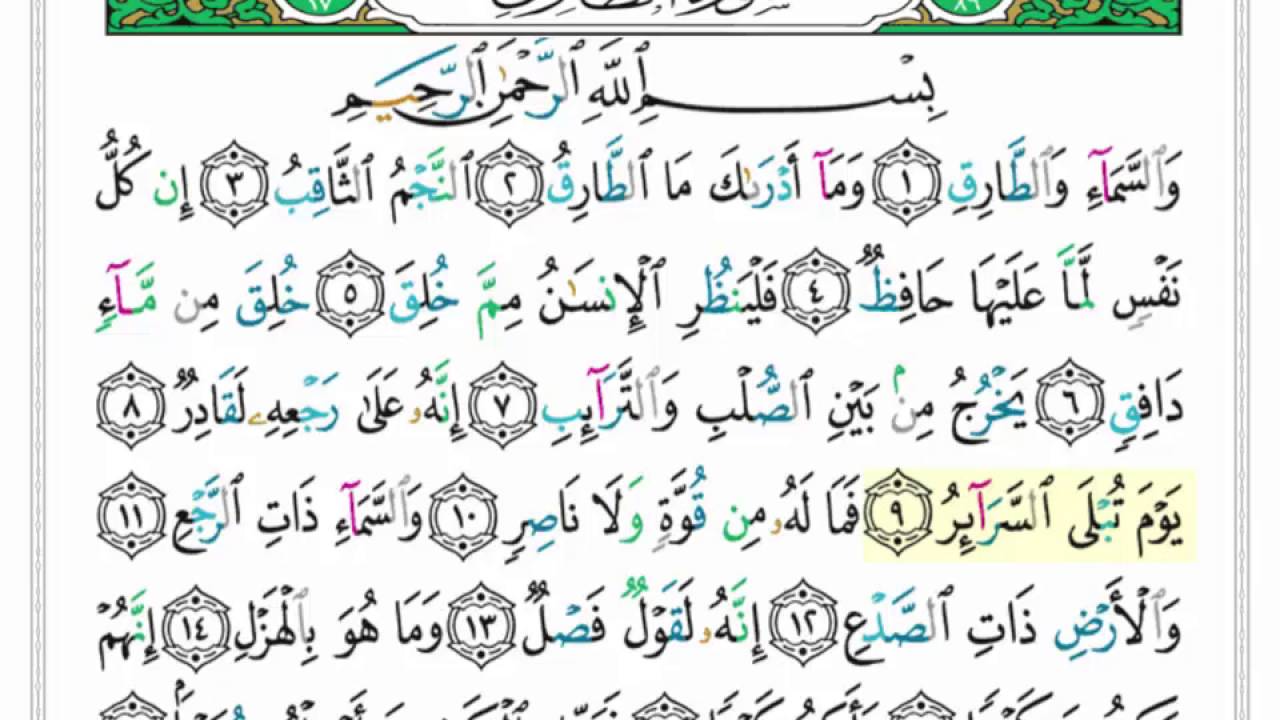 ١٧ سورة الطارق ٨٦
بِسْمِ ٱللَّهِ ٱلرَّحْمَٰنِ ٱلرَّحِيمِ
وَٱلسَّمَآءِ وَٱلطَّارِقِ ١ وَمَآ أَدْرَىٰكَ مَا ٱلطَّارِقُ ٢ ٱلنَّجْمُ ٱلثَّاقِبُ ٣ إِن كُلُّ
نَفْسٍ لَّمَّا عَلَيْهَا حَافِظٌ ٤ فَلْيَنظُرِ ٱلْإِنسَٰنُ مِمَّ خُلِقَ ٥ خُلِقَ مِن مَّآءٍ
دَافِقٍ ٦ يَخْرُجُ مِنۢ بَيْنِ ٱلصُّلْبِ وَٱلتَّرَآئِبِ ٧ إِنَّهُۥ عَلَىٰ رَجْعِهِۦ لَقَادِرٌ ٨
يَوْمَ تُبْلَى ٱلسَّرَآئِرُ ٩ فَمَا لَهُۥ مِن قُوَّةٍ وَلَا نَاصِرٍ ١٠ وَٱلسَّمَآءِ ذَاتِ ٱلرَّجْعِ ١١
وَٱلْأَرْضِ ذَاتِ ٱلصَّدْعِ ١٢ إِنَّهُۥ لَقَوْلٌ فَصْلٌ ١٣ وَمَا هُوَ بِٱلْهَزْلِ ١٤ إِنَّهُمْ